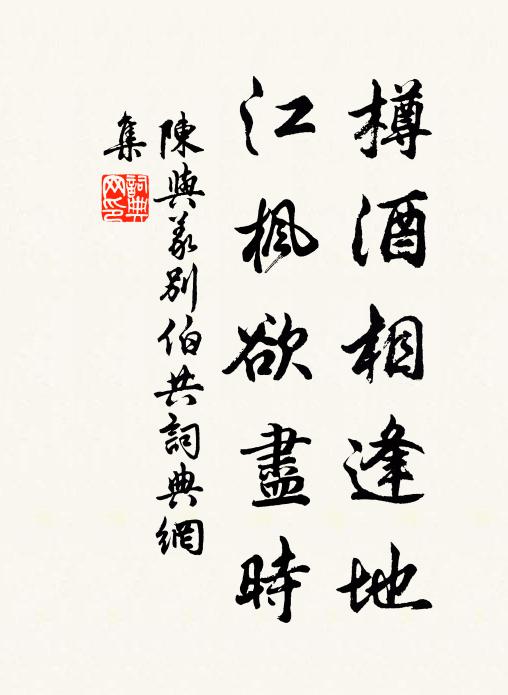 樽酒相逢地
江楓欲盡時
陳與義別伯共詞典網
集
詞典
网印